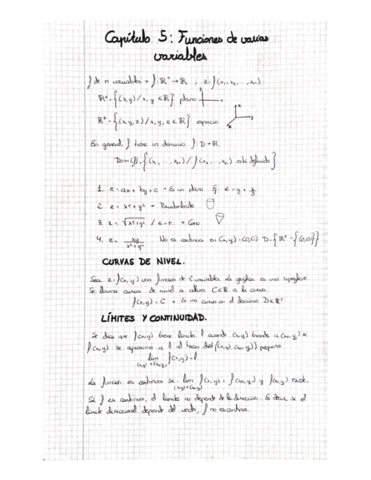 Capítulo 5: Funciones de varias
variables
f de n variables → f: Rⁿ → R , z = f(x₁, x₂, ... xₙ)
R² = {(x,y) / x, y ∈ R} plano
R³ = {(x,y,z) / x, y, z ∈ R} espacio
En general, f tiene un dominio f: D → R
Dom(f) = {(x₁, ... xₙ) / f(x₁, ... xₙ) está definida}
1. z = ax + by + c → Es un plano
2. z = x² + y² → Paraboloide
3. z = √x²+y² → Cono
4. z = No es continua en (x,y) = (0,0) D = {R² - {(0,0)}}
CURVAS DE NIVEL.
Sea z = f(x,y) una función de 2 variables. La gráfica es una superficie.
Se llama curva de nivel a altura C ∈ R a la curva
f(x,y) = C → Es una curva en el dominio D ∈ R²
LÍMITES Y CONTINUIDAD.
Se dice que f(x,y) tiene límite l cuando (x,y) tiende a (x₀,y₀) si
f(x,y) se aproxima a l
lim f(x,y) = l
(x,y)→(x₀,y₀)
La función es continua si: lim f(x,y) = f(x₀,y₀) y f(x₀,y₀) existe.
(x,y)→(x₀,y₀)
Si f es continua, el límite no depende de la dirección. Es decir, si el
límite direccional depende del vector, f no es continua.